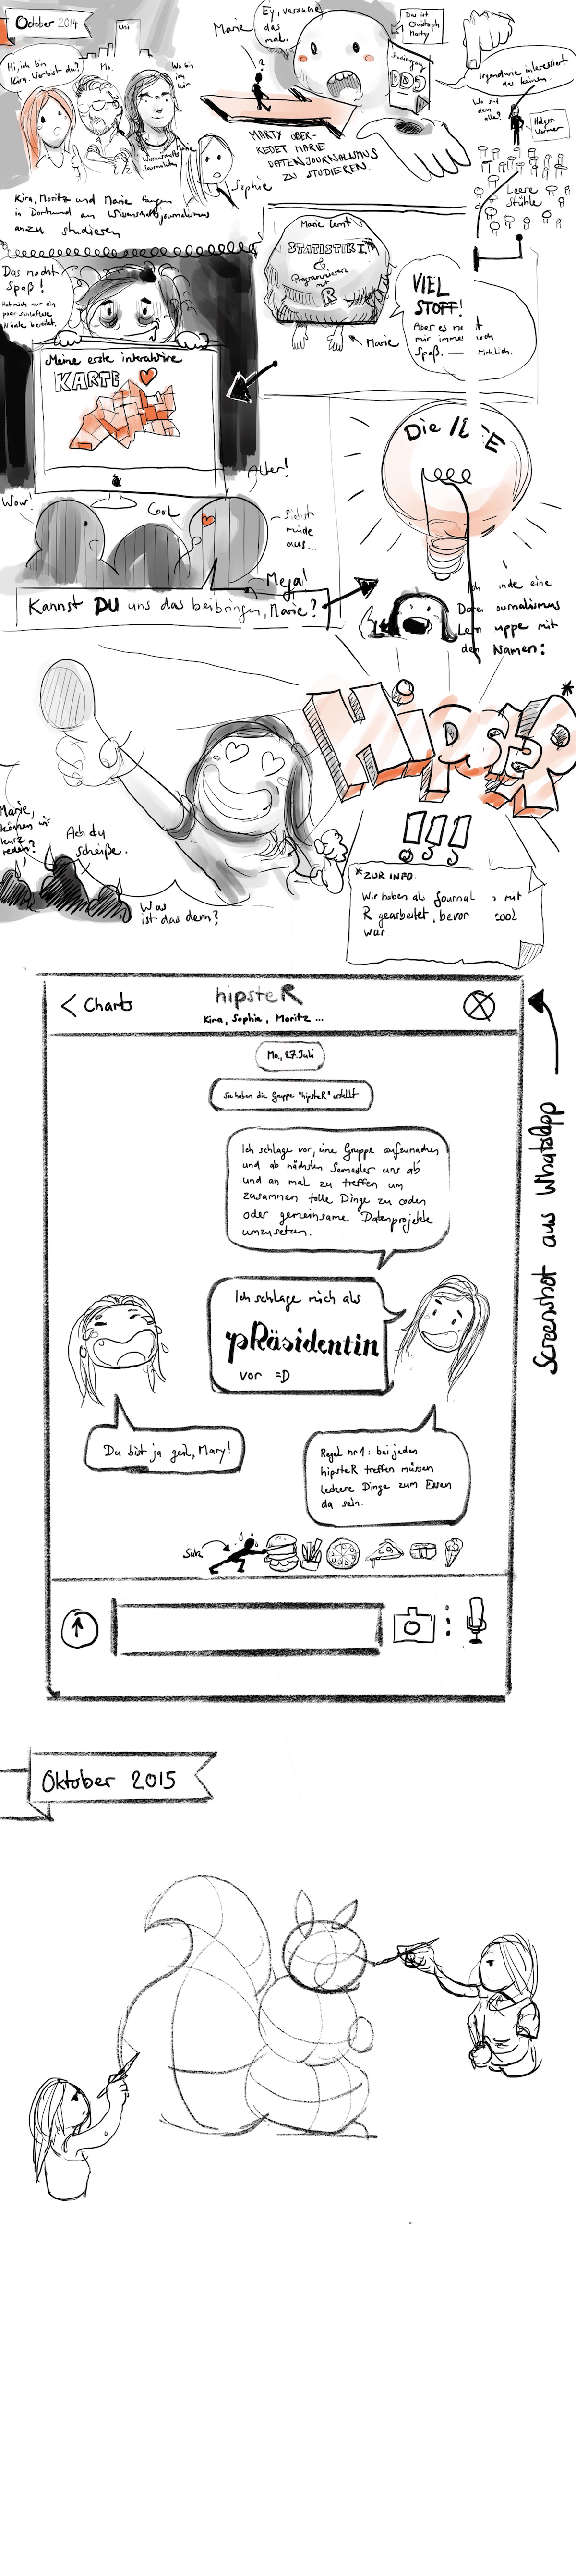 October 2014
Uni
Hi, ich bin
Kira. Und du?
Mo.
Wo bin
ich
hier
Wissenschafts
Journalism
Marie
Sophie
Kira, Moritz und Marie fangen
in Dortmund an Wissenschaftsjournalismus
anzu studieren
Marie
?
Ey, versuche
das
mal.
Das ist
Christoph
Marty
Studiengang
DDJ
MARTY ÜBER-
REDET MARIE
DATENJOURNALISMUS
ZU STUDIEREN.
Irgendwie interessiert
das keinen.
Wo sind
denn
alle?
Holger
Wormer
Leere
Stühle
Das macht
Spaß!
Hat mich nur ein
paar schlaflose
Nächte bereitet.
Meine erste interaktive
KARTE
Marie lernt
STATISTIK I
&
Programmieren
mit
R
Marie
VIEL
STOFF!
Aber es ma t
mir immer noch
Spaß.
Wow!
Cool
Alter!
Siehst
müde
aus...
Mega!
Kannst DU uns das beibringen, Marie?
Die IDEE
Ich inde eine
Daten ournalismus
Lern uppe mit
dem Namen:
HipsteR*
!!!
Marie,
können wir
kurz
reden?
Ach du
scheiße.
Was
ist das denn?
*ZUR INFO:
Wir haben als Journal mit
R gearbeitet, bevor cool
war
< Charts
hipsteR
Kira, Sophie, Moritz ...
Mo., 27. Juli
Sie haben die Gruppe "hipsteR" erstellt
Ich schlage vor, eine Gruppe aufzumachen
und ab nächsten Semester uns ab
und an mal zu treffen um
zusammen tolle Dinge zu coden
oder gemeinsame Datenprojekte
umzusetzen.
Ich schlage mich als
pRäsidentin
vor =D
Du bist ja geil, Mary!
Regel nr 1: bei jeden
hipsteR treffen müssen
leckere Dinge zum Essen
da sein.
Screenshot aus WhatsApp
Oktober 2015